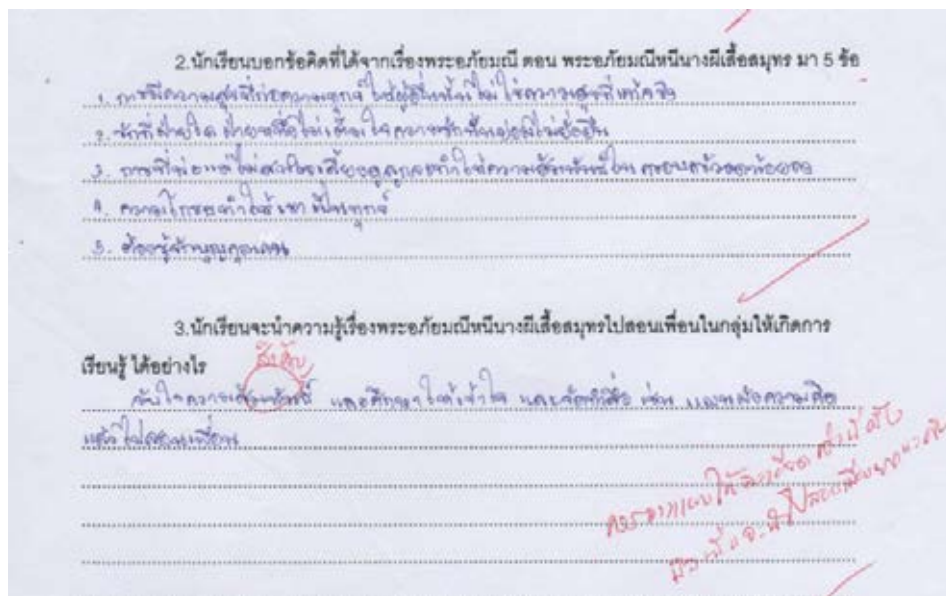 2.นักเรียนบอกข้อคิดที่ได้จากเรื่องพระอภัยมณี ตอน พระอภัยมณีหนีนางผีเสื้อสมุทร มา 5 ข้อ
1. การมีความสุขที่ก่อความทุกข์ให้ผู้อื่นนั้นไม่ใช่ความสุขที่แท้จริง
2. รักที่ฝ่ายใด ฝ่ายหนึ่งไม่เต็มใจความรักนั้นย่อมไม่ยั่งยืน
3. การที่พ่อแม่ไม่สนใจเลี้ยงดูลูกจะทำให้ความสัมพันธ์ในครอบครัวลดน้อยลง
4. ความโกรธทำให้เราเป็นทุกข์
5. ต้องรู้จักบุญคุณคน
3.นักเรียนจะนำความรู้เรื่องพระอภัยมณีหนีนางผีเสื้อสมุทรไปสอนเพื่อนในกลุ่มให้เกิดการ
เรียนรู้ ได้อย่างไร
จับใจความ และศึกษาให้เข้าใจ และจัดทำสื่อ เช่น แผนผังความคิด
แล้วไปสอนเพื่อน